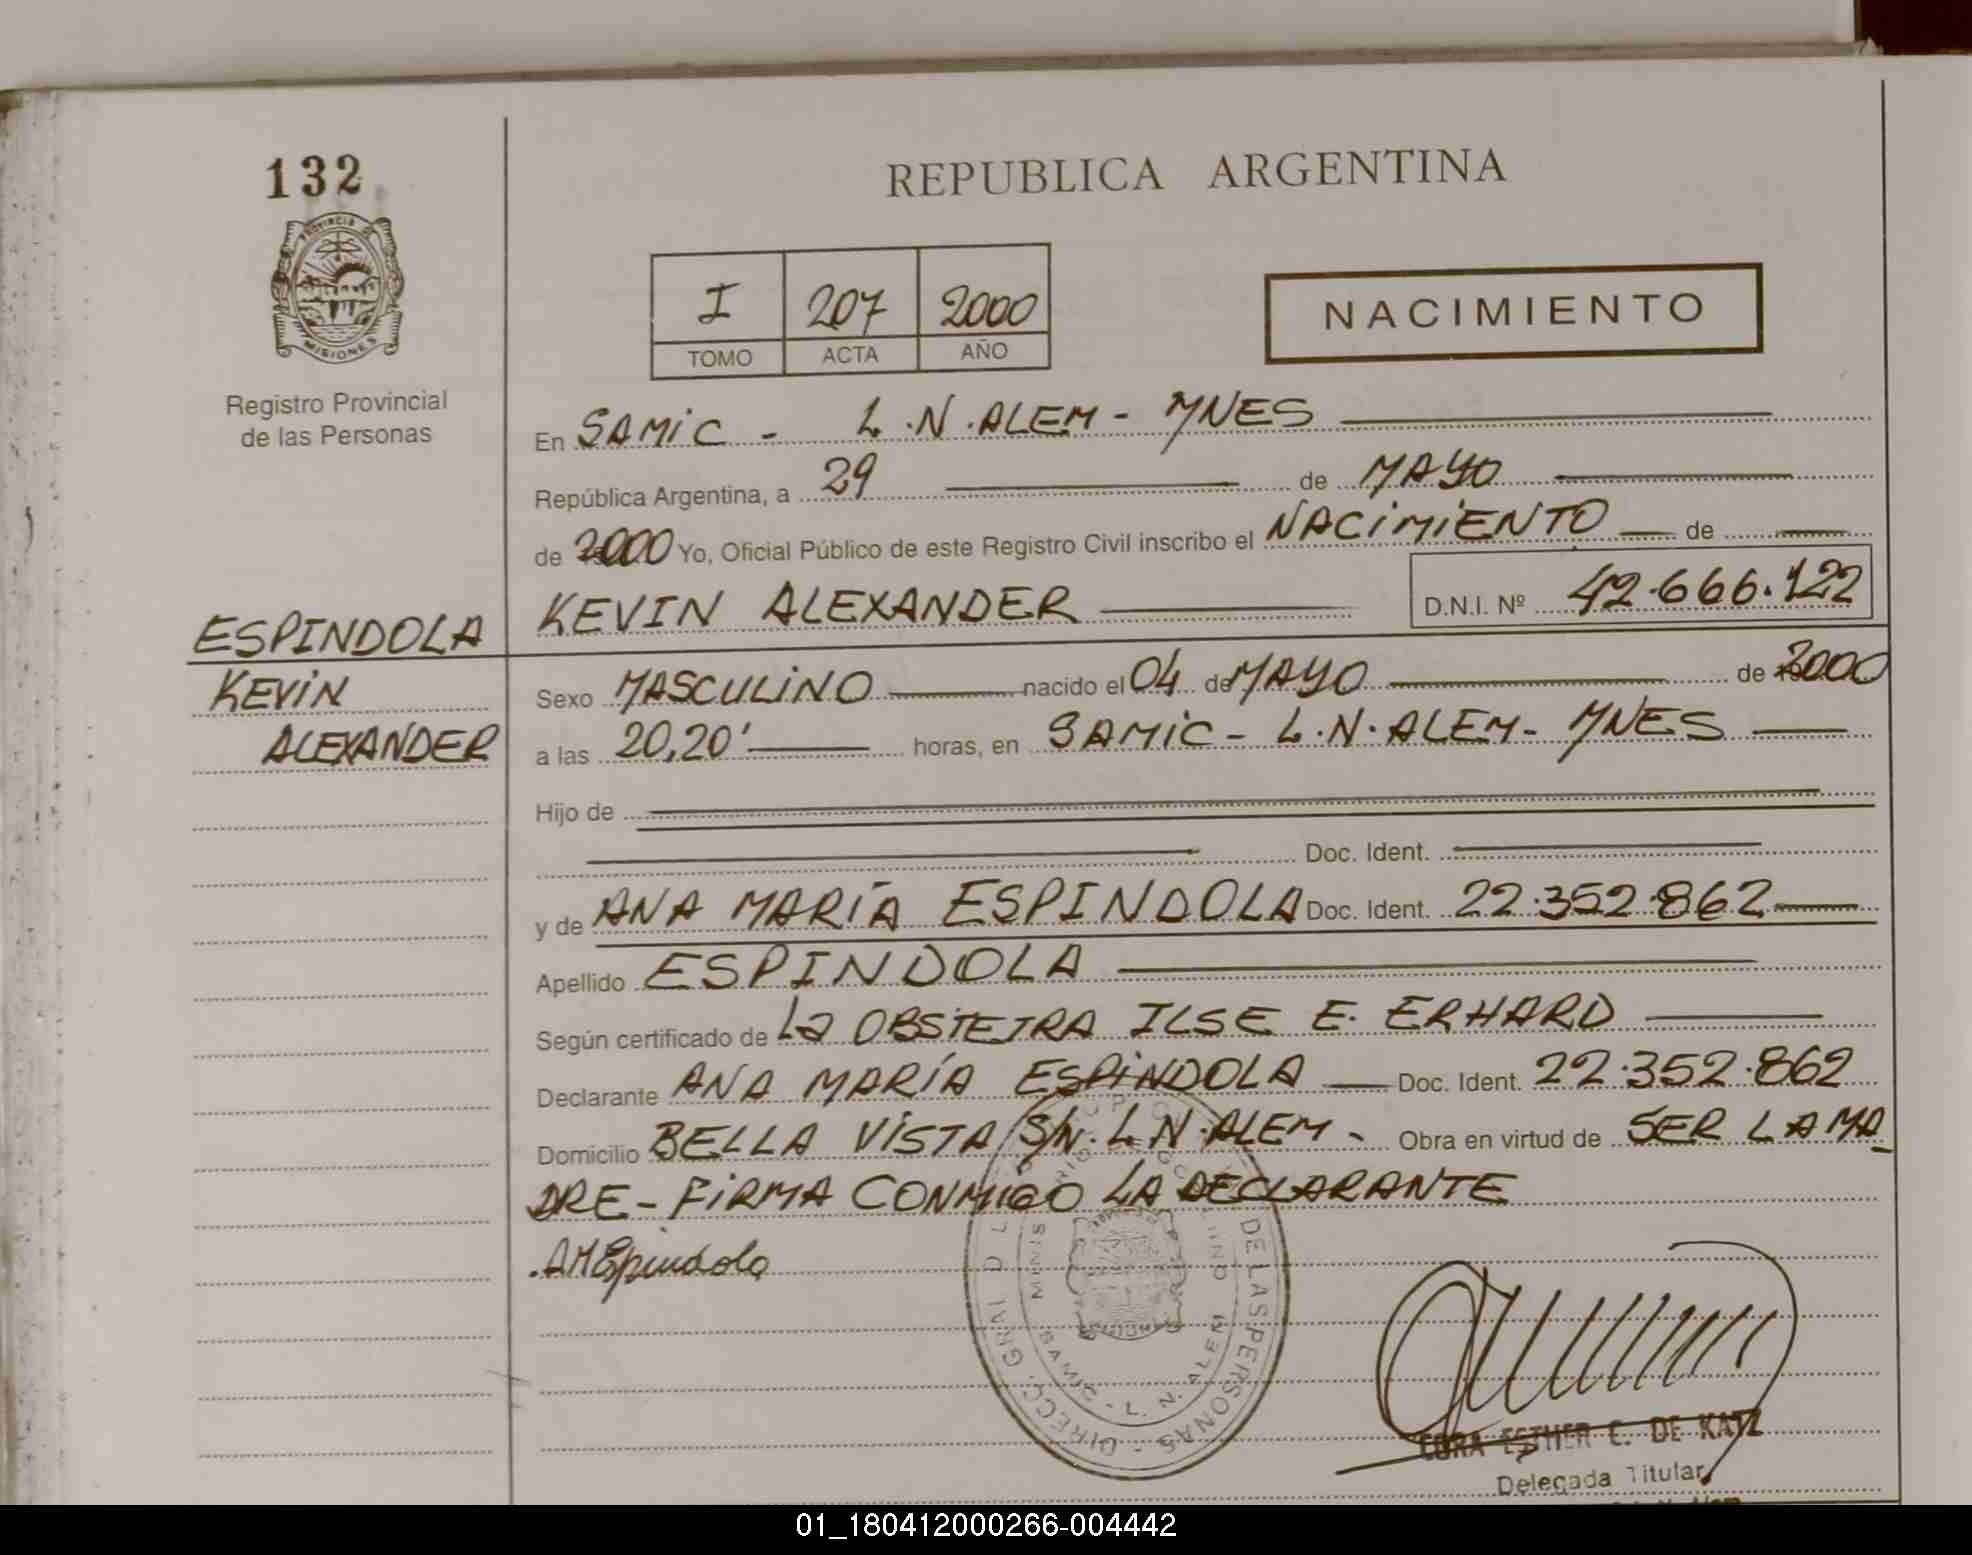 132
REPUBLICA ARGENTINA
PROVINCIA DE
MISIONES
I 207 2000
TOMO ACTA AÑO
NACIMIENTO
Registro Provincial
de las Personas
En SAMIC - L.N.ALEM - MNES
República Argentina, a 29 de MAYO
de 2000 Yo, Oficial Público de este Registro Civil inscribo el NACIMIENTO de
KEVIN ALEXANDER D.N.I. Nº 42.666.122
ESPINDOLA
KEVIN
ALEXANDER
Sexo MASCULINO nacido el 04 de MAYO de 2000
a las 20,20' horas, en SAMIC - L.N.ALEM - MNES
Hijo de
Doc. Ident.
y de ANA MARÍA ESPINDOLA Doc. Ident. 22.352.862
Apellido ESPINDOLA
Según certificado de La OBSTETRA ILSE E. ERHARD
Declarante ANA MARÍA ESPINDOLA Doc. Ident. 22.352.862
Domicilio BELLA VISTA S/N. L.N.ALEM - Obra en virtud de SER LA MA
DRE - FIRMA CONMIGO LA DECLARANTE
AMEspindola
DIRECC. GRAL DE LAS PERSONAS
SAMIC - L. N. ALEM
ESTHER C. DE KATZ
Delegada Titular
01_180412000266-004442